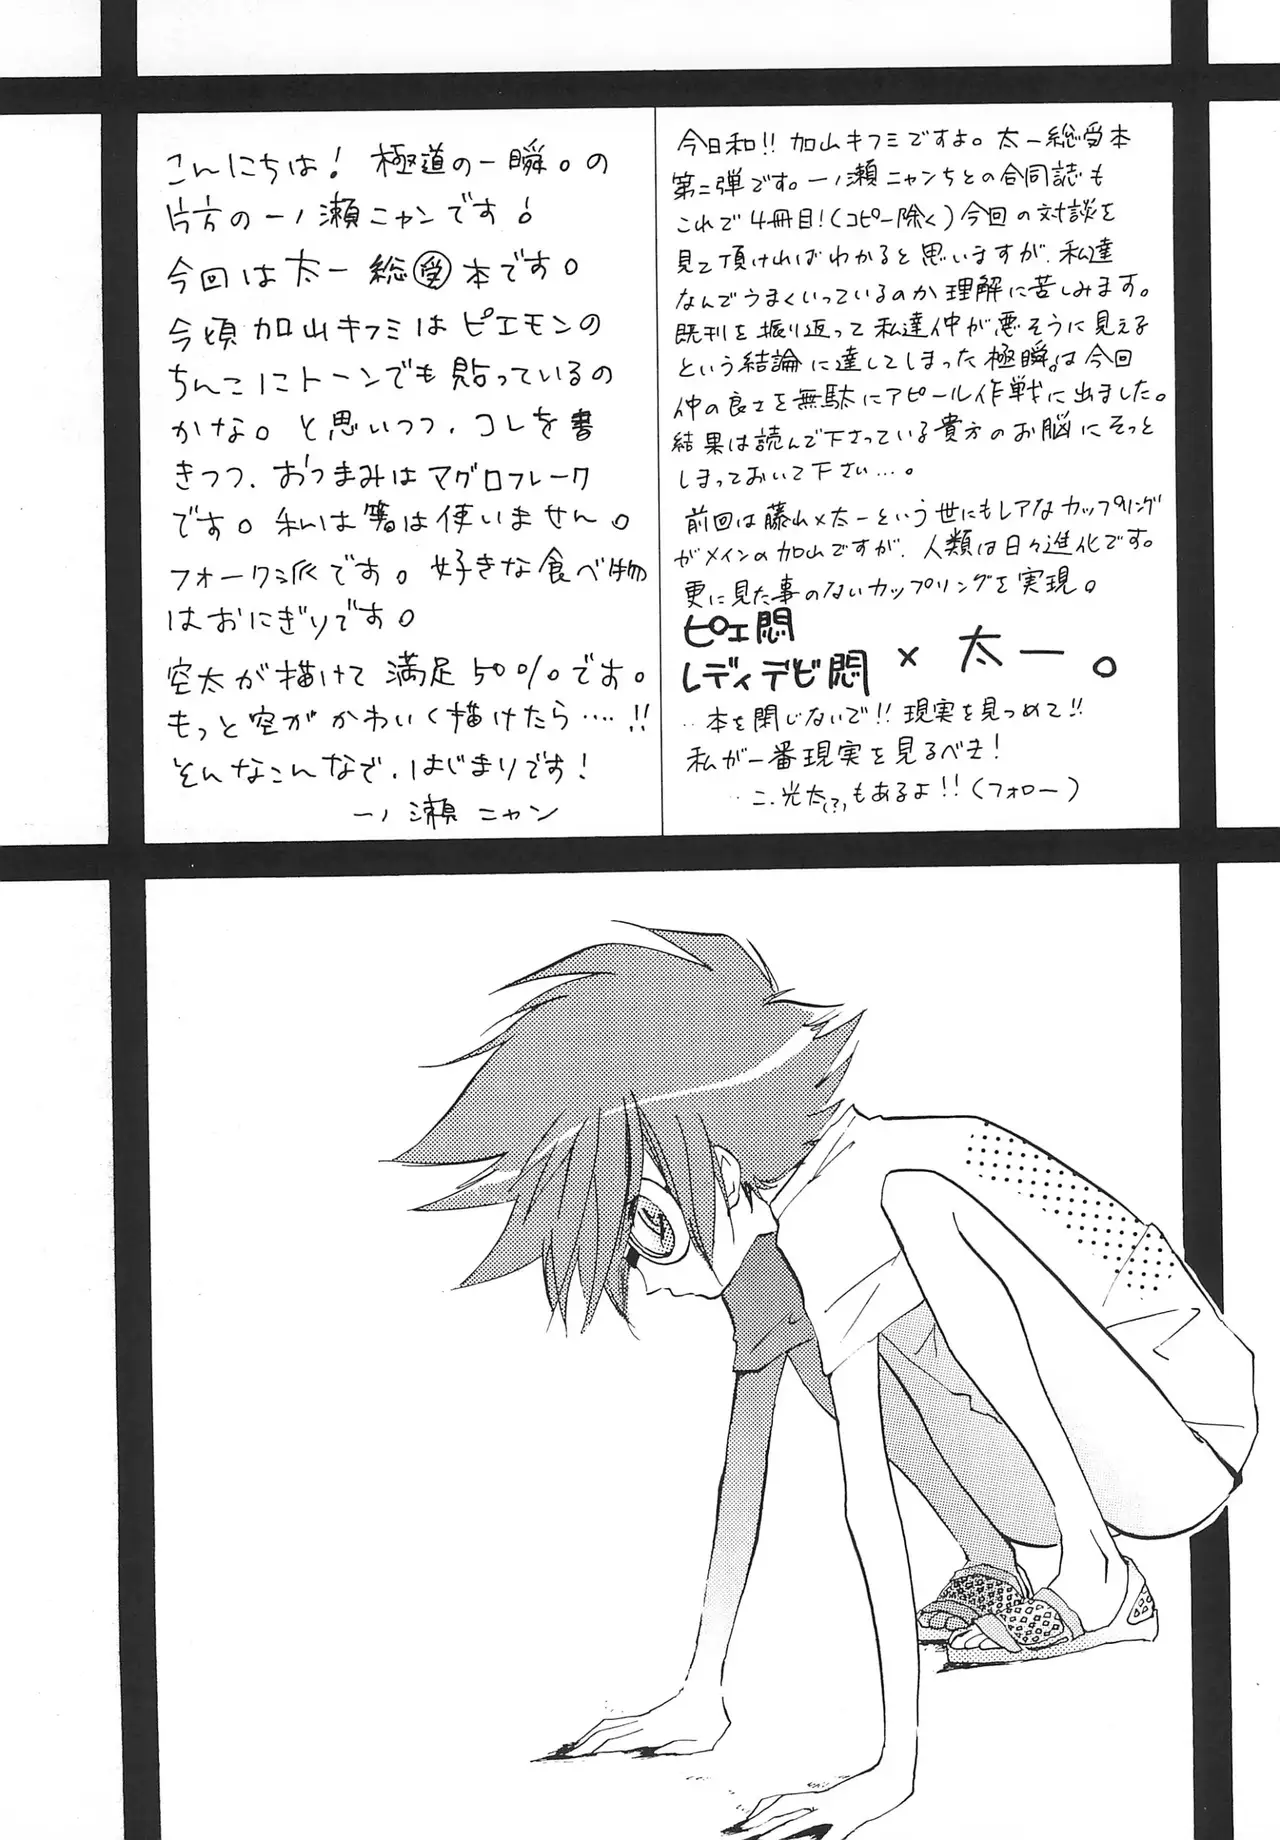 こんにちは！極道の一瞬。の
片方の一ノ瀬ニャンです！
今回は太一総受本です。
今頃加山キフミはピエモンの
ちんこにトーンでも貼っているの
かな。と思いつつ、コレを書
きつつ、おつまみはマグロフレーク
です。私は箸は使いません。
フォーク派です。好きな食べ物
はおにぎりです。
空太が描けて満足50%です。
もっと空がかわいく描けたら……!!
そんなこんなで、はじまりです！
一ノ瀬ニャン
今日和!!加山キフミですよ。太一総受本
第二弾です。一ノ瀬ニャンちとの合同誌も
これで4冊目！(コピー除く)今回の対談を
見て頂ければわかると思いますが、私達
なんでうまくいっているのか理解に苦しみます。
既刊を振り返って私達仲が悪そうに見える
という結論に達してしまった極瞬。は今回
仲の良さを無駄にアピール作戦に出ました。
結果は読んで下さっている貴方のお脳にそっと
しまっておいて下さい…。
前回は藤山×太一という世にもレアなカップリング
がメインの加山ですが、人類は日々進化です。
更に見た事のないカップリングを実現。
ピエ悶
レディデビ悶 × 太一。
‥本を閉じないで!!現実を見つめて!!
私が一番現実を見るべき！
‥ニ、光太(?)もあるよ!!(フォロー)